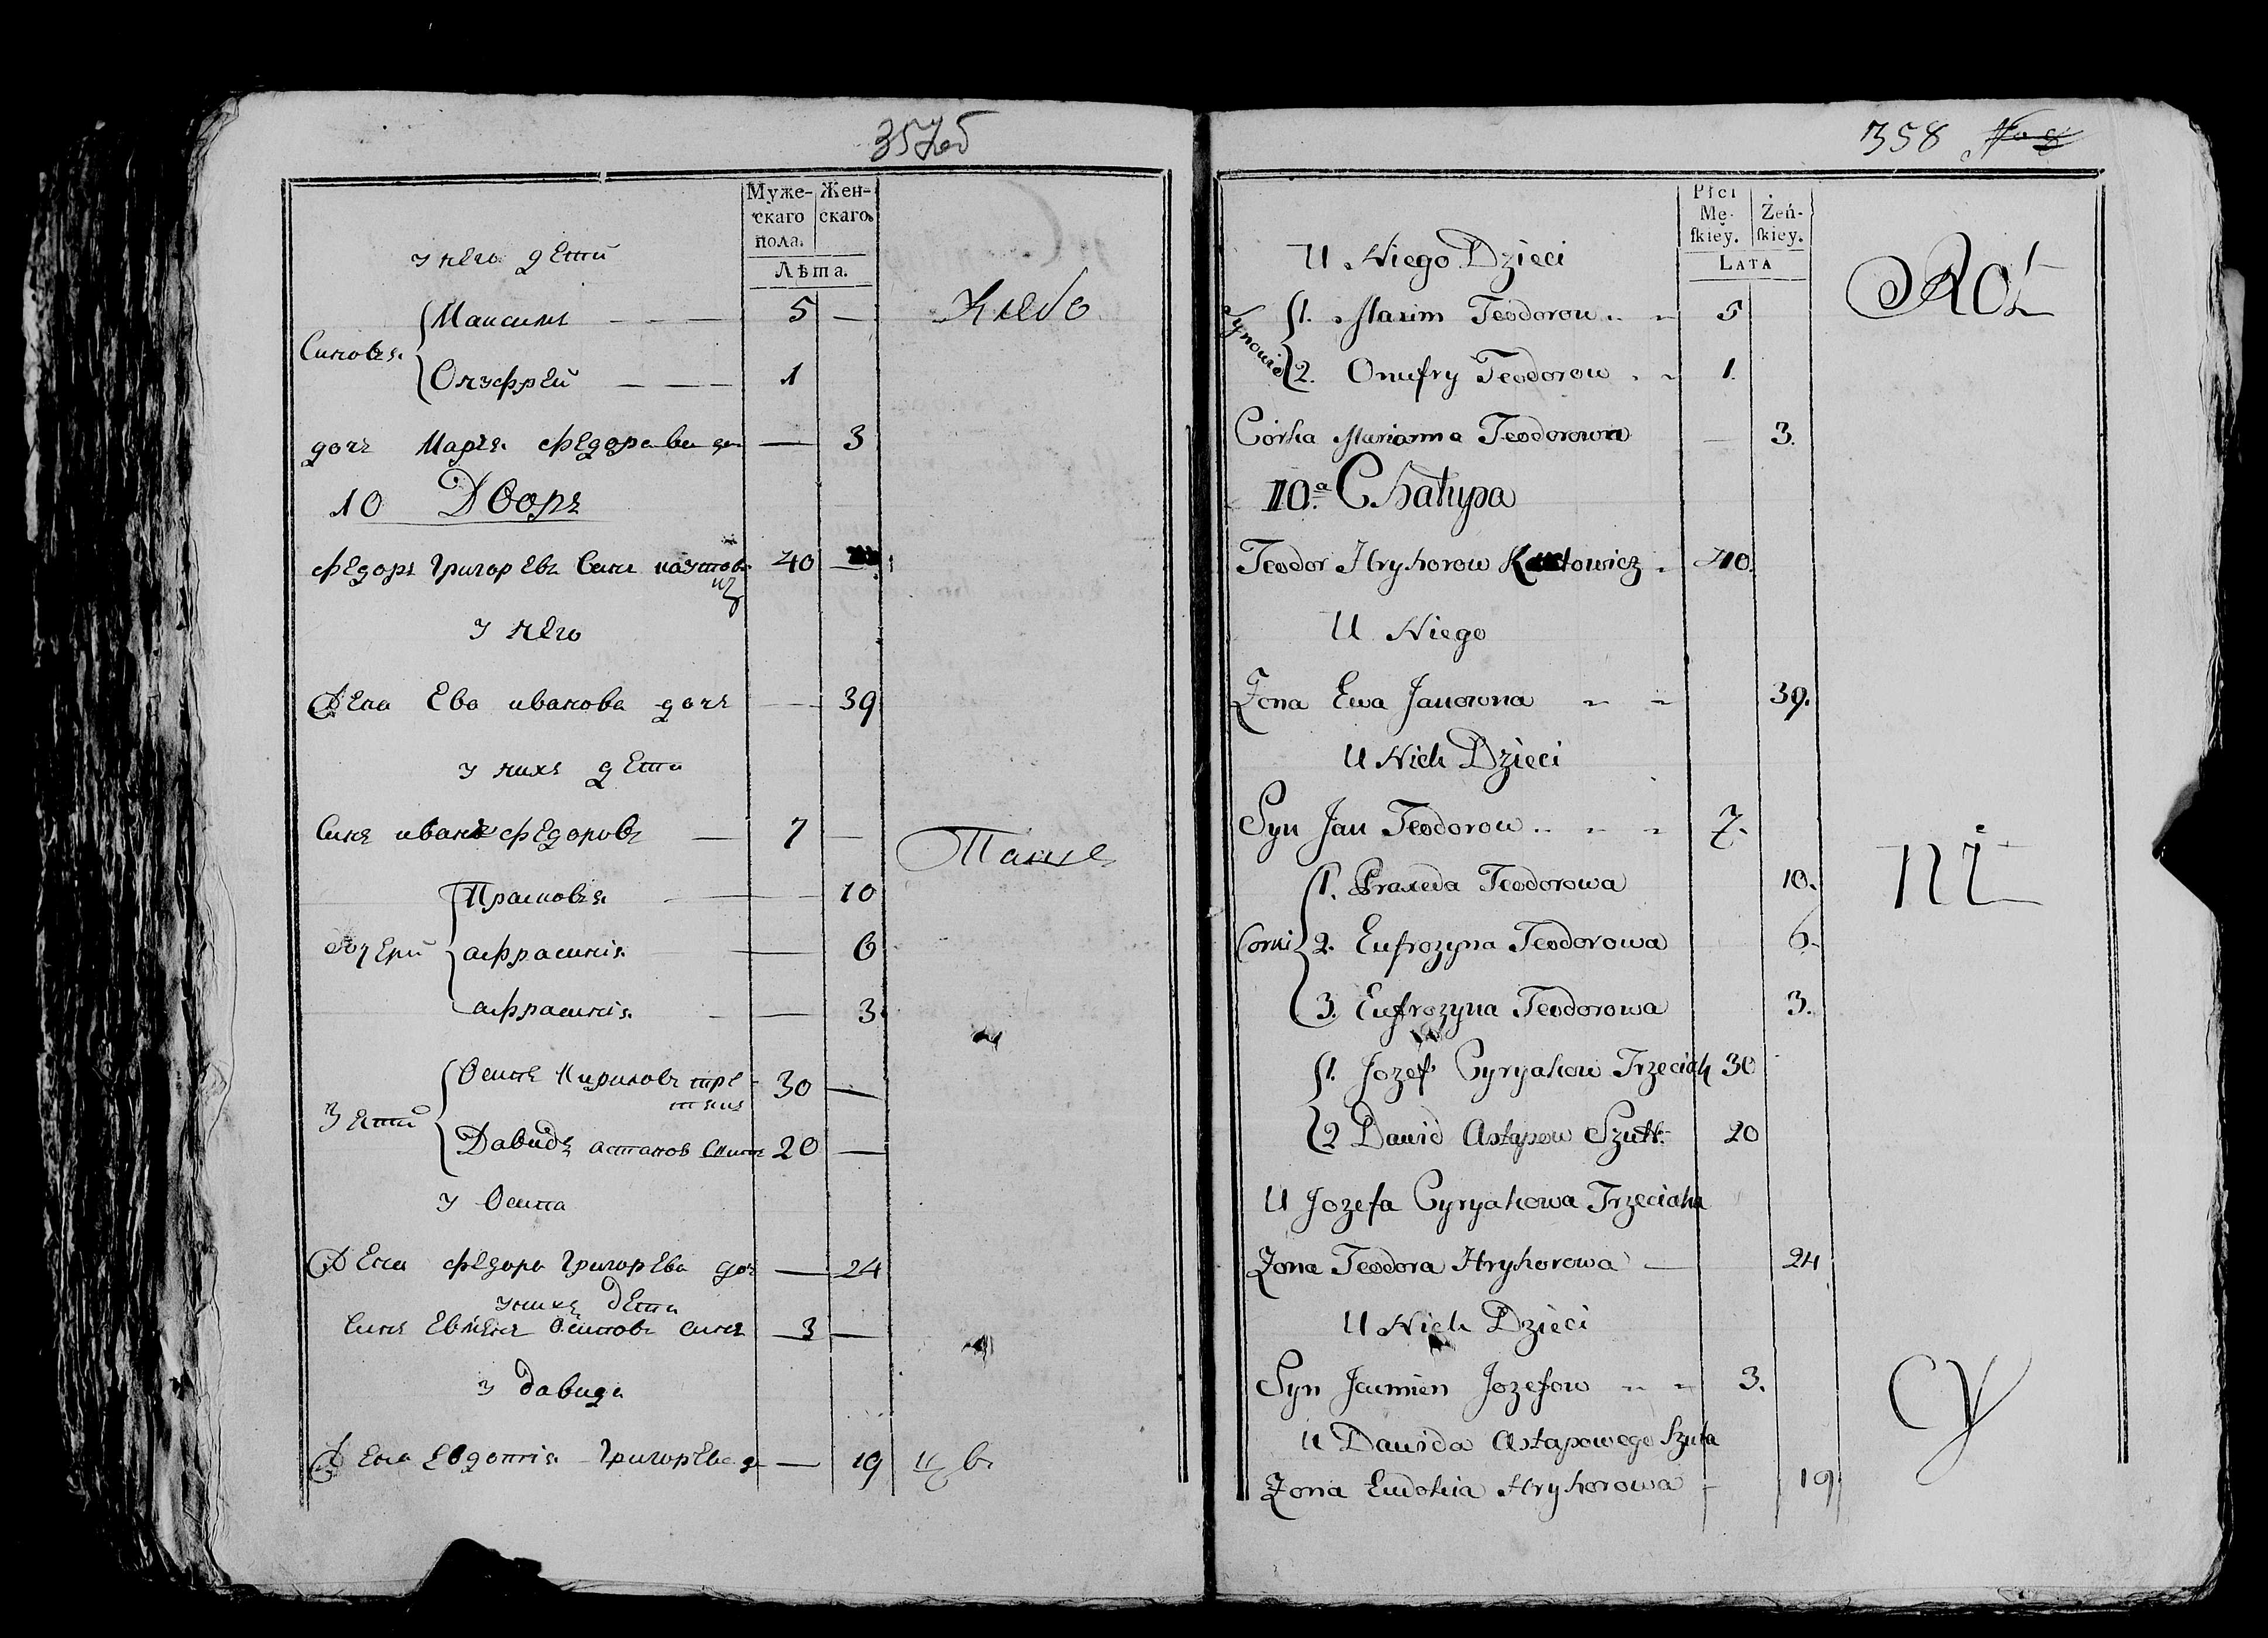 357об
Муже-
скаго
пола.
Жен-
скаго.
Лѣта.
у него дети
Синовья
Максимъ — — — 5 —
Онуфрей — — — 1
дочь Марья федорова до — 3
10 Дворъ
федоръ григоревъ Синъ 40 —
у него
Жена Ева иванова дочь — 39
у нихъ дети
Синъ иванъ федоровъ — 7 —
дочери
Прасковья — 10
афрасинія — 6
афрасинія — 3
Зяти
Осипъ Кириловъ тре-
тякъ 30 —
Давидъ астапов 20 —
у Осипа
Жена федора григорева доч — 24
у нихъ дети
Синъ Евменъ Осиповъ синъ 3 —
у давида
Жена Евдотія григорева д — 19
358
Płci
Mę-
skiey.
Żeń-
skiey.
LATA
U Niego Dzieci
Synowie
1. Maxim Teodorow 5
2. Onufry Teodorow 1.
Córka Marianna Teodorowa — 3.
10.a Chałupa
Teodor Hryhorow 40.
U Niego
Żona Ewa Janowna 39.
U Nich Dzieci
Syn Jan Teodorow 7.
Corki
1. Praxeda Teodorowa 10.
2. Eufrozyna Teodorowa 6.
3. Eufrozyna Teodorowa 3.
1. Jozef Cyryakow Trzeciak 30
2 Dawid Astapow Szutt 20
U Jozefa Cyryakowa Trzeciaka
Żona Teodora Hryhorowa — 24
U Nich Dzieci
Syn Jaumien Jozefow 3.
U Dawida Astapowego Szuta
Żona Eudokia Hryhorowa — 19